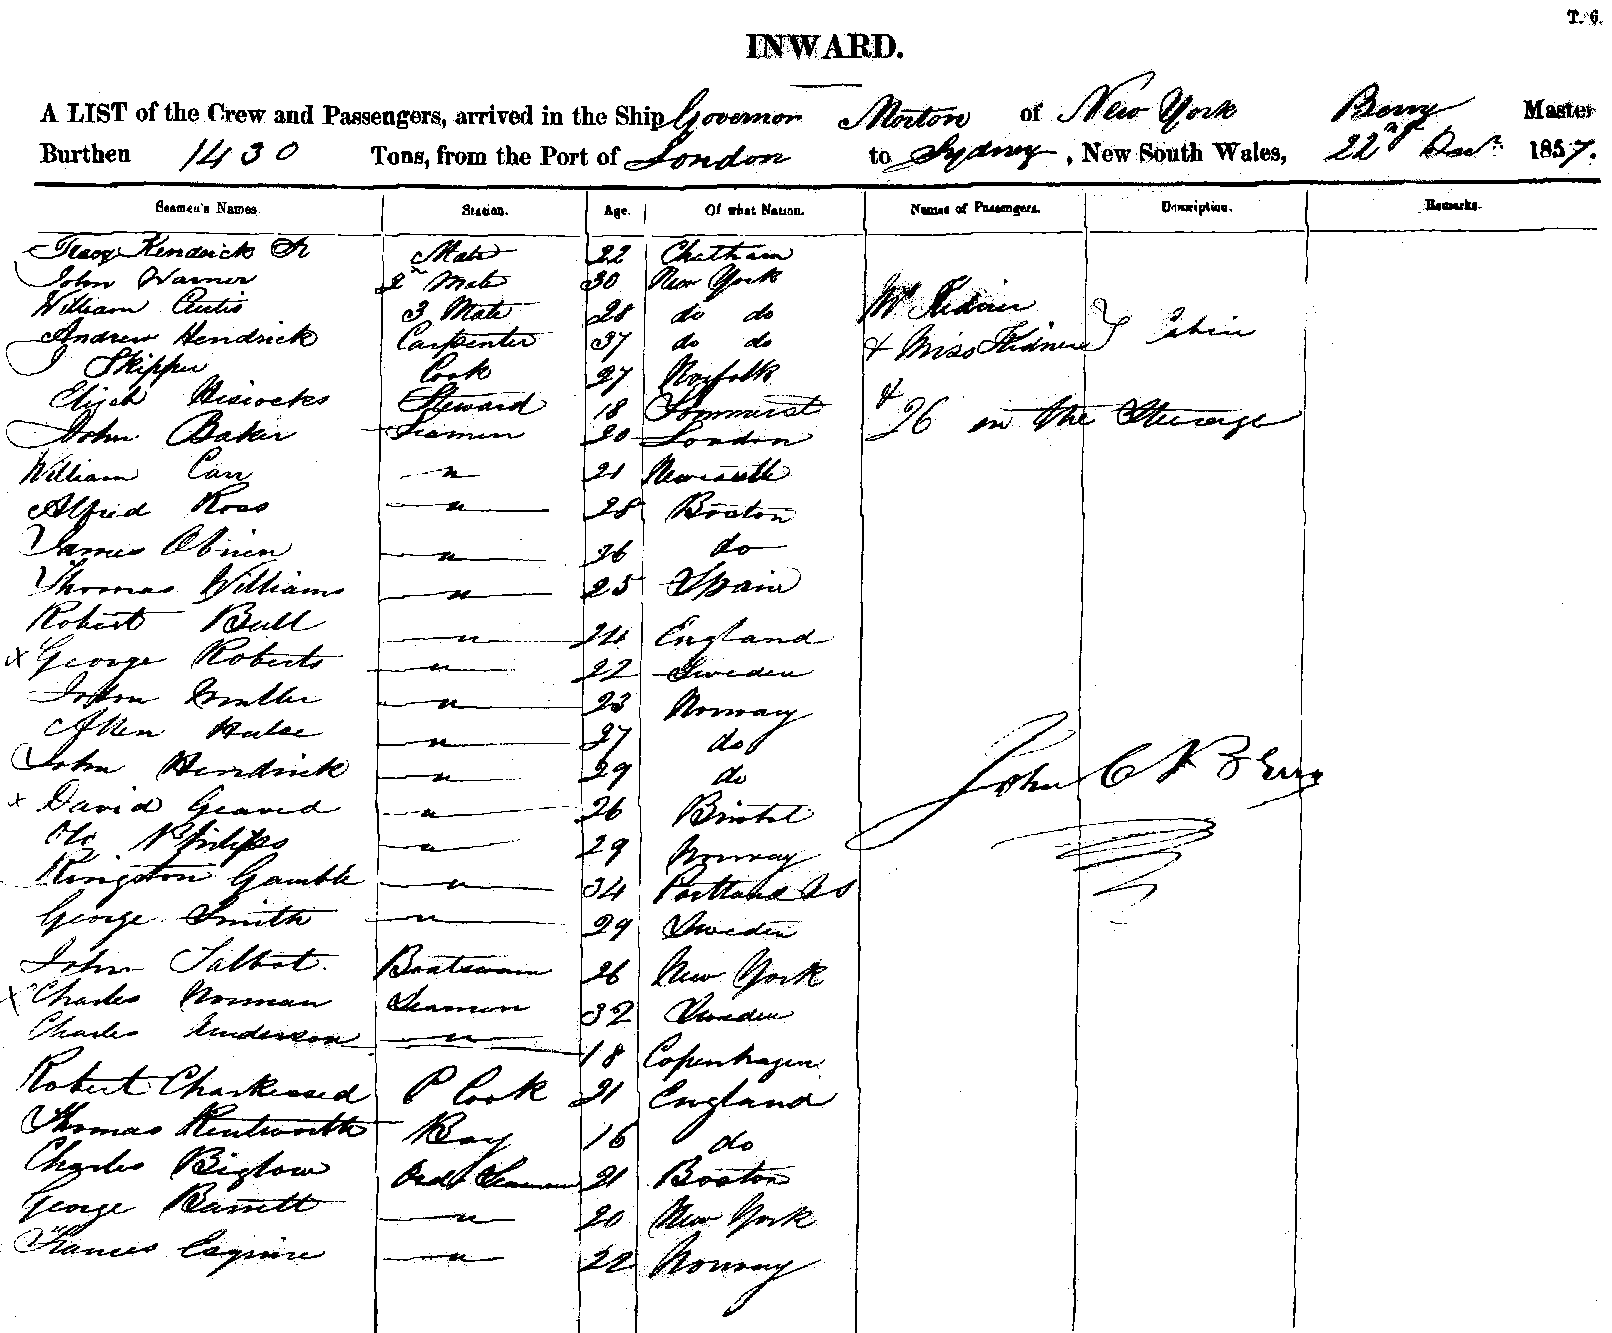 T. 6.
INWARD.
A LIST of the Crew and Passengers, arrived in the Ship Governor Morton of New York Berry Master
Burthen 1430 Tons, from the Port of London to Sydney, New South Wales, 22nd Decr 1857.
Seamen's Names. Station. Age. Of what Nation. Names of Passengers. Description. Remarks.
Kendrick Jr Mate 22 Chatham
John Warner 2n Mate 30 New York
William Curtis 3 Mate 28 do do Mr
Andrew Hendrick Carpenter 37 do do & Miss Cabin
J Skipper Cook 27 Norfolk
Elijah Hiscocks Steward 18 Sommerset & 26 in the Steerage
John Baker Seamen 20 London
William Carr " 21 Newcastle
Alfred Ross " 28 Boston
James Obrien " 26 do
Thomas Williams " 25 Spain
Robert Bull " 24 England
x George Roberts " 22 Sweden
John Miller " 23 Norway
" 27 do
John Hendrick " 29 do
x David " 26 Bristol
Philips " 29 Norway
Kingston Gamble " 34 Portland US
George Smith " 29 Sweden
John Talbot. Boatswain 26 New York
x Charles Norman Seamen 32 Sweden
Charles " 18 Copenhagen
Robert P Cook 21 England
Thomas Kentworth Boy 16 do
Charles Biglow Ord Seaman 21 Boston
George Barrett " 20 New York
Frances Esquire " 22 Norway
John C Berry